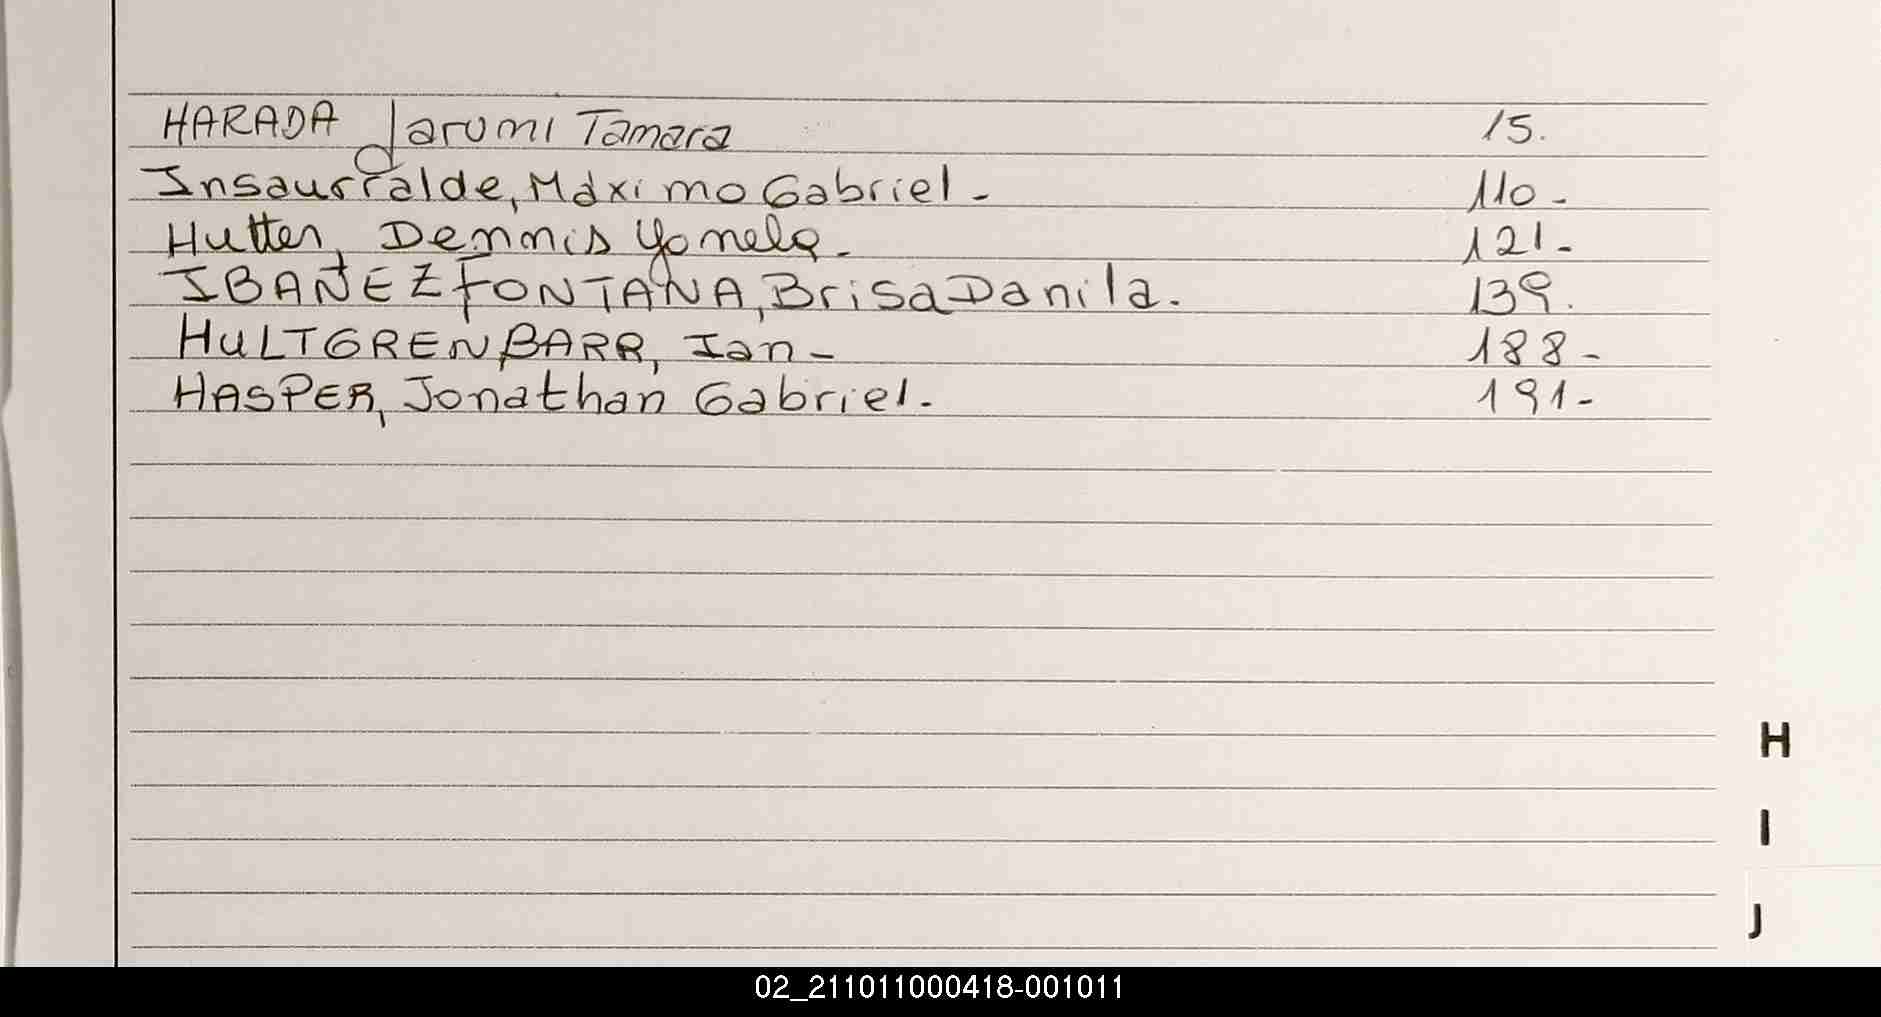 HARADA Jarumi Tamara 15.
Insaurralde, Máximo Gabriel - 110 -
Hutter, Demnis Yomela - 121 -
IBAÑEZ FONTANA, Brisa Danila. 139.
HULTGREN BARR, Ian - 188 -
HASPER, Jonathan Gabriel. 191 -
H
I
J
02_211011000418-001011